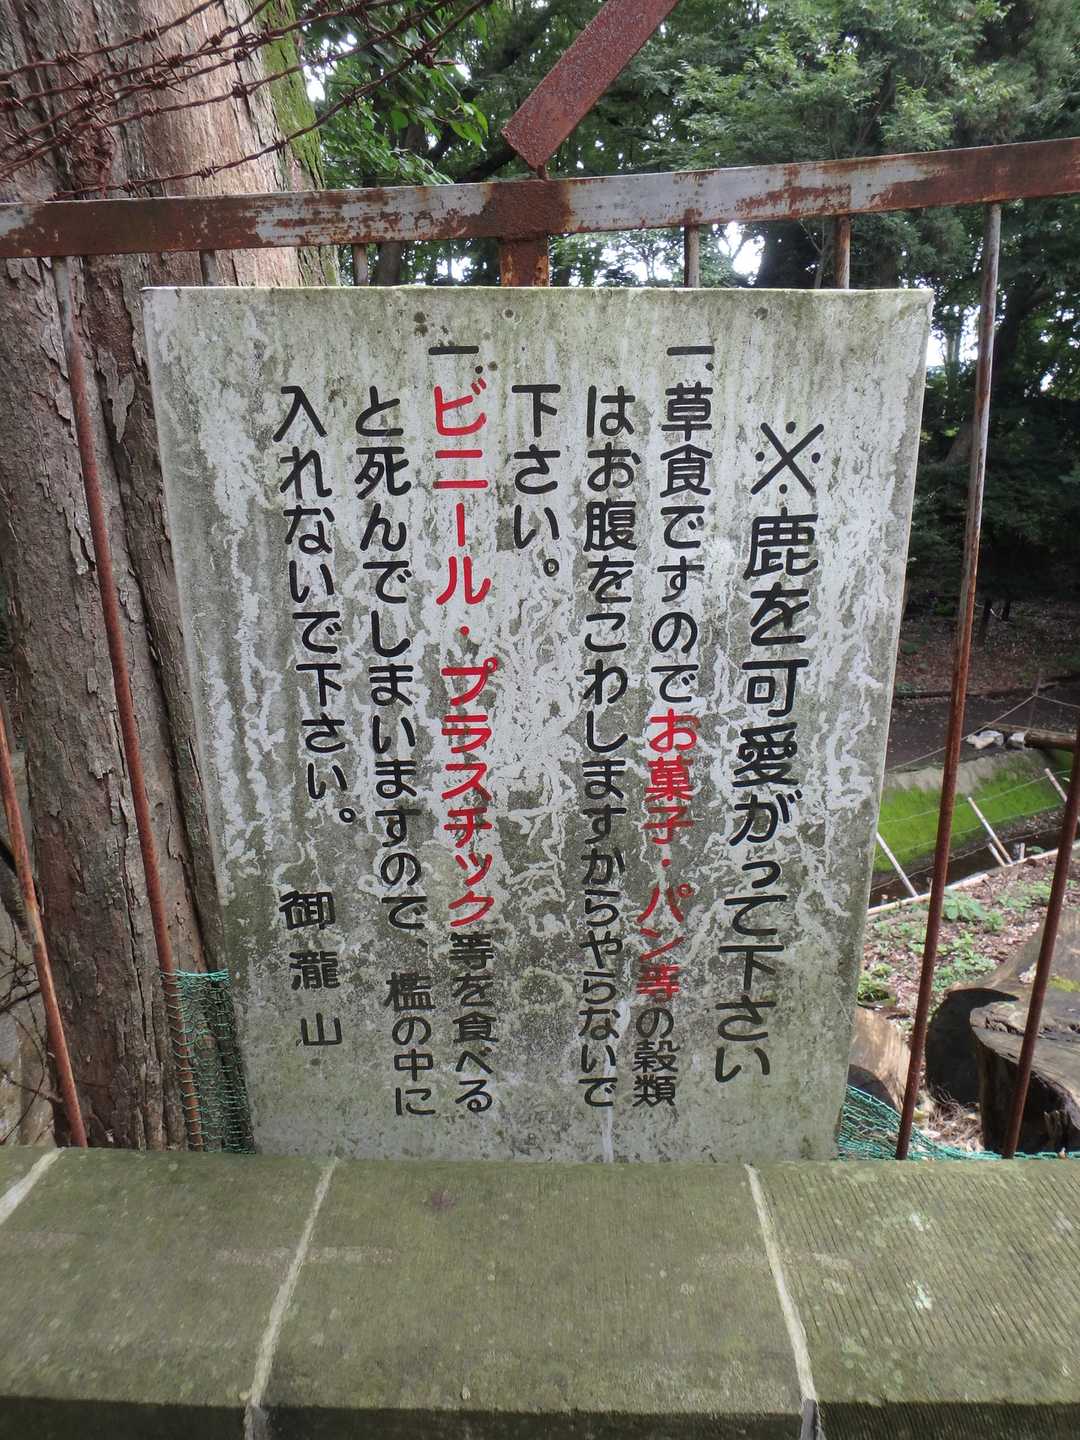 ※鹿を可愛がって下さい
一.草食ですのでお菓子・パン等の穀類
はお腹をこわしますからやらないで
下さい。
一.ビニール・プラスチック等を食べる
と死んでしまいますので、檻の中に
入れないで下さい。
御瀧山